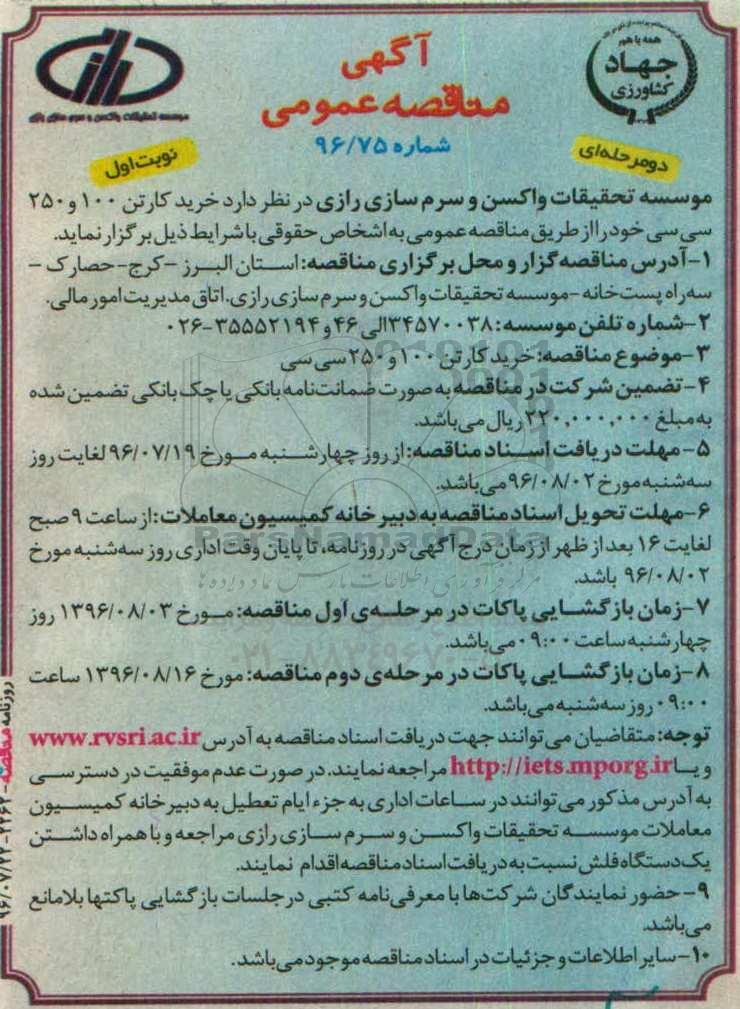 همه با هم
جهاد
کشاورزی
موسسه تحقیقات واکسن و سرم سازی رازی
آگهی
مناقصه عمومی
شماره ۹۶/۷۵
دو مرحله‌ای
نوبت اول
موسسه تحقیقات واکسن و سرم سازی رازی در نظر دارد خرید کارتن ۱۰۰ و ۲۵۰
سی سی خود را از طریق مناقصه عمومی به اشخاص حقوقی با شرایط ذیل برگزار نماید.
۱-آدرس مناقصه گزار و محل برگزاری مناقصه: استان البرز -کرج- حصارک -
سه راه پست خانه -موسسه تحقیقات واکسن و سرم سازی رازی. اتاق مدیریت امور مالی.
۲-شماره تلفن موسسه: ۳۴۵۷۰۰۳۸الی ۴۶ و ۳۵۵۵۲۱۹۴-۰۲۶
۳-موضوع مناقصه: خرید کارتن ۱۰۰ و ۲۵۰ سی سی
۴- تضمین شرکت در مناقصه به صورت ضمانت‌نامه بانکی یا چک بانکی تضمین شده
به مبلغ ۲۲۰,۰۰۰,۰۰۰ ریال می‌باشد.
۵- مهلت دریافت اسناد مناقصه: از روز چهارشنبه مورخ ۹۶/۰۷/۱۹ لغایت روز
سه‌شنبه مورخ ۹۶/۰۸/۰۲ می‌باشد.
۶-مهلت تحویل اسناد مناقصه به دبیرخانه کمیسیون معاملات: از ساعت ۹ صبح
لغایت ۱۶ بعد از ظهر از زمان درج آگهی در روزنامه، تا پایان وقت اداری روز سه‌شنبه مورخ
۹۶/۰۸/۰۲ باشد.
۷-زمان بازگشایی پاکات در مرحله‌ی اول مناقصه: مورخ ۱۳۹۶/۰۸/۰۳ روز
چهارشنبه ساعت ۰۹:۰۰ می‌باشد.
۸-زمان بازگشایی پاکات در مرحله‌ی دوم مناقصه: مورخ ۱۳۹۶/۰۸/۱۶ ساعت
۰۹:۰۰ روز سه‌شنبه می‌باشد.
توجه: متقاضیان می‌توانند جهت دریافت اسناد مناقصه به آدرس www.rvsri.ac.ir
و یا http://iets.mporg.ir مراجعه نمایند. در صورت عدم موفقیت در دسترسی
به آدرس مذکور می‌توانند در ساعات اداری به جزء ایام تعطیل به دبیرخانه کمیسیون
معاملات موسسه تحقیقات واکسن و سرم سازی رازی مراجعه و با همراه داشتن
یک دستگاه فلش نسبت به دریافت اسناد مناقصه اقدام نمایند.
۹- حضور نمایندگان شرکت‌ها با معرفی‌نامه کتبی در جلسات بازگشایی پاکتها بلامانع
می‌باشد.
۱۰- سایر اطلاعات و جزئیات در اسناد مناقصه موجود می‌باشد.
ParsNamadData
مرکز فرآوری اطلاعات پارس نماد داده ها
۰۲۱-۸۸۳۴۹۶۷۰
روزنامه مناقصه-۲۲۶۲-۹۶/۰۷/۲۲